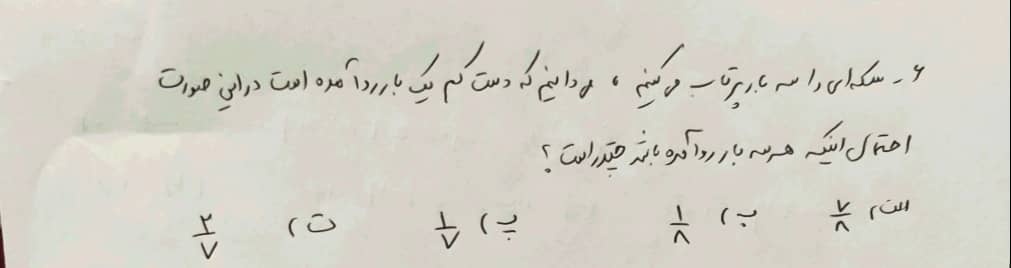 ۶- سکه‌ای را سه بار پرتاب می‌کنیم ، می‌دانیم که دست کم یک بار رو آمده است در این صورت
احتمال اینکه هر سه بار رو آمده باشد چقدر است ؟
الف) ۷/۸ ب) ۱/۸ پ) ۱/۷ ت) ۲/۷